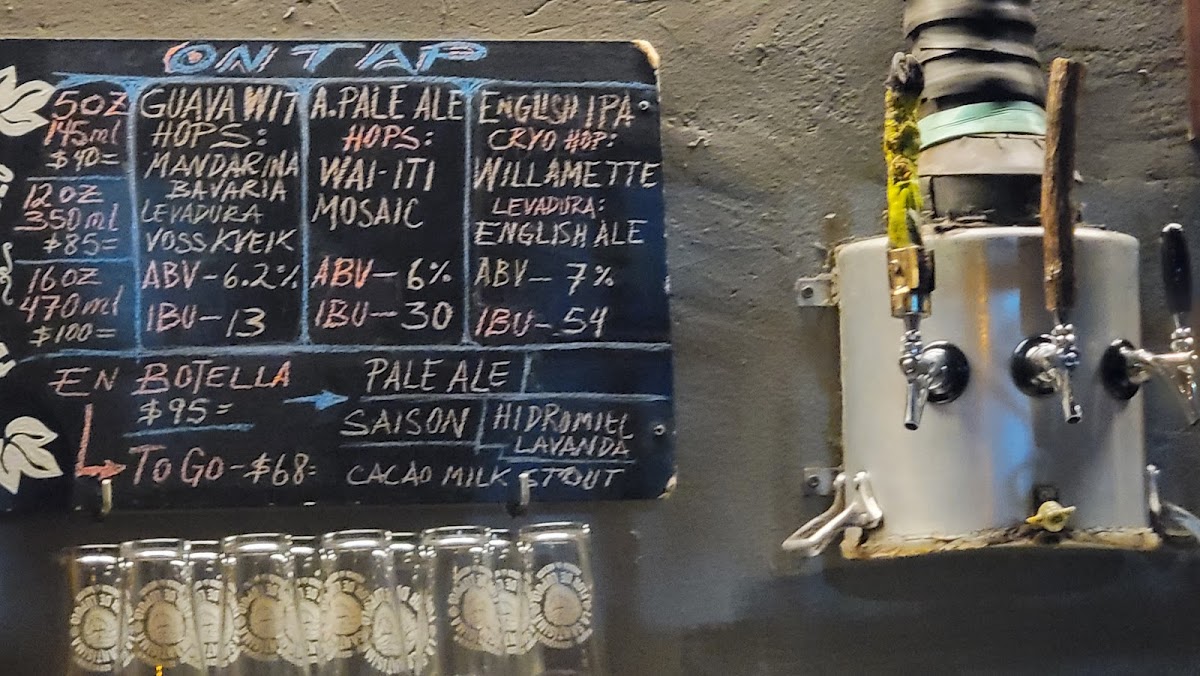 ON TAP
5OZ
145ml
$40=
12OZ
350ml
$85=
16OZ
470ml
$100=
GUAVA WIT
HOPS:
MANDARINA
BAVARIA
LEVADURA
VOSS KVEIK
ABV-6.2%
IBU-13
A.PALE ALE
HOPS:
WAI-ITI
MOSAIC
ABV-6%
IBU-30
ENGLISH IPA
CRYO HOP:
WILLAMETTE
LEVADURA:
ENGLISH ALE
ABV-7%
IBU-54
EN BOTELLA
$95=
TO GO-$68=
PALE ALE
SAISON
HIDROMIEL
LAVANDA
CACAO MILK STOUT